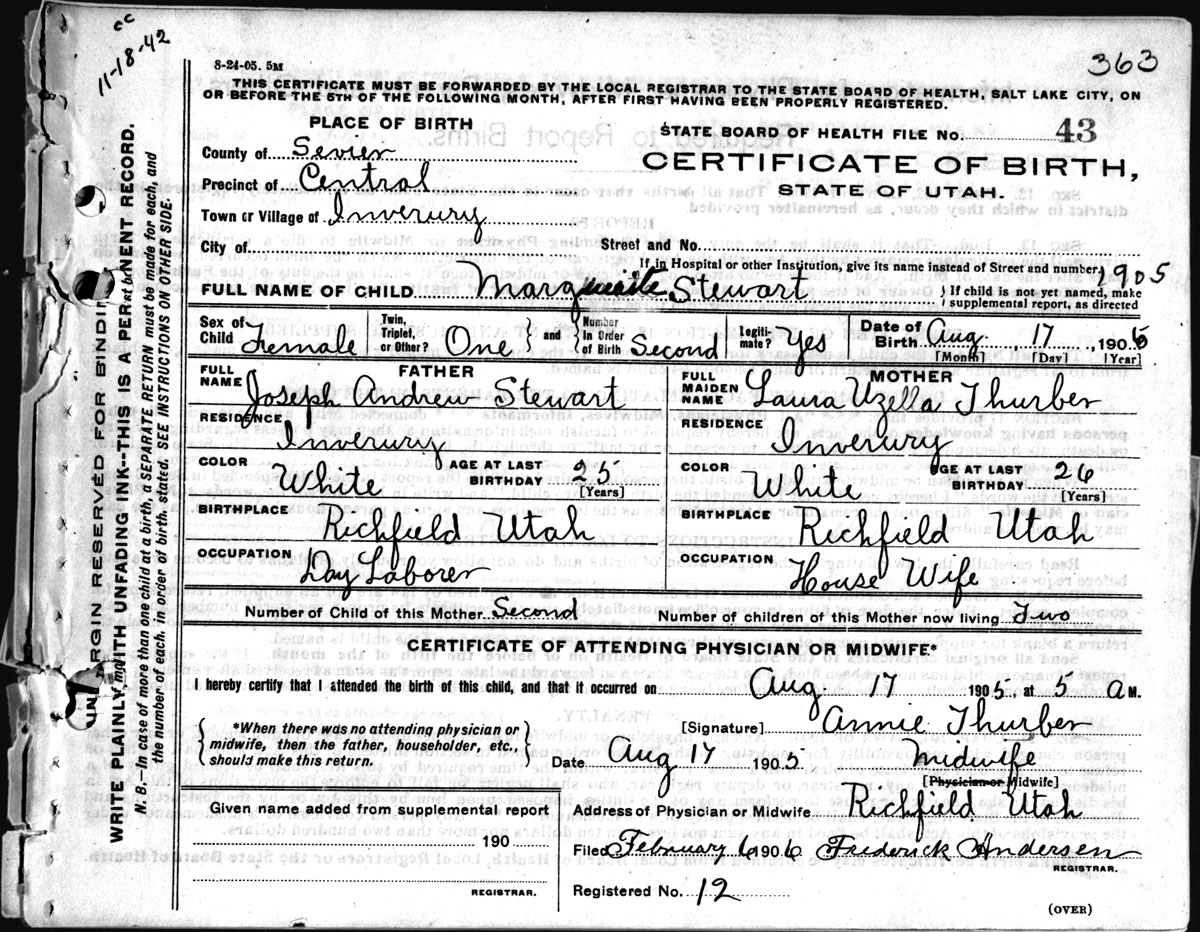 cc
11-18-42
363
8-24-05. 5M
THIS CERTIFICATE MUST BE FORWARDED BY THE LOCAL REGISTRAR TO THE STATE BOARD OF HEALTH, SALT LAKE CITY, ON
OR BEFORE THE 5TH OF THE FOLLOWING MONTH, AFTER FIRST HAVING BEEN PROPERLY REGISTERED.
PLACE OF BIRTH
STATE BOARD OF HEALTH FILE No. 43
County of Sevier
CERTIFICATE OF BIRTH,
Precinct of Central
STATE OF UTAH.
Town or Village of Inverury
City of Street and No.
If in Hospital or other Institution, give its name instead of Street and number
1905
FULL NAME OF CHILD Marguerite Stewart } If child is not yet named, make
supplemental report, as directed
Sex of Child Female Twin, Triplet, or Other? One } and { Number in Order of Birth Second Legiti-mate? Yes Date of Birth Aug. 17, 1905
[Month] [Day] [Year]
FATHER
FULL NAME Joseph Andrew Stewart
RESIDENCE Inverury
COLOR White AGE AT LAST BIRTHDAY 25
[Years]
BIRTHPLACE Richfield Utah
OCCUPATION Day Laborer
MOTHER
FULL MAIDEN NAME Laura Uzella Thurber
RESIDENCE Inverury
COLOR White AGE AT LAST BIRTHDAY 26
[Years]
BIRTHPLACE Richfield Utah
OCCUPATION House Wife
Number of Child of this Mother Second Number of children of this Mother now living Two
CERTIFICATE OF ATTENDING PHYSICIAN OR MIDWIFE*
I hereby certify that I attended the birth of this child, and that it occurred on Aug. 17 1905, at 5 a M.
{ *When there was no attending physician or
midwife, then the father, householder, etc.,
should make this return. }
[Signature] Annie Thurber
Date Aug 17 1905 Midwife
[Physician or Midwife]
Given name added from supplemental report
190
REGISTRAR.
Address of Physician or Midwife Richfield Utah
Filed February 6 1906 Frederick Andersen
REGISTRAR.
Registered No. 12
(OVER)
WRITE PLAINLY WITH UNFADING INK--THIS IS A PERMANENT RECORD.
N. B.—In case of more than one child at a birth, a SEPARATE RETURN must be made for each, and
the number of each, in order of birth, stated. SEE INSTRUCTIONS ON OTHER SIDE.